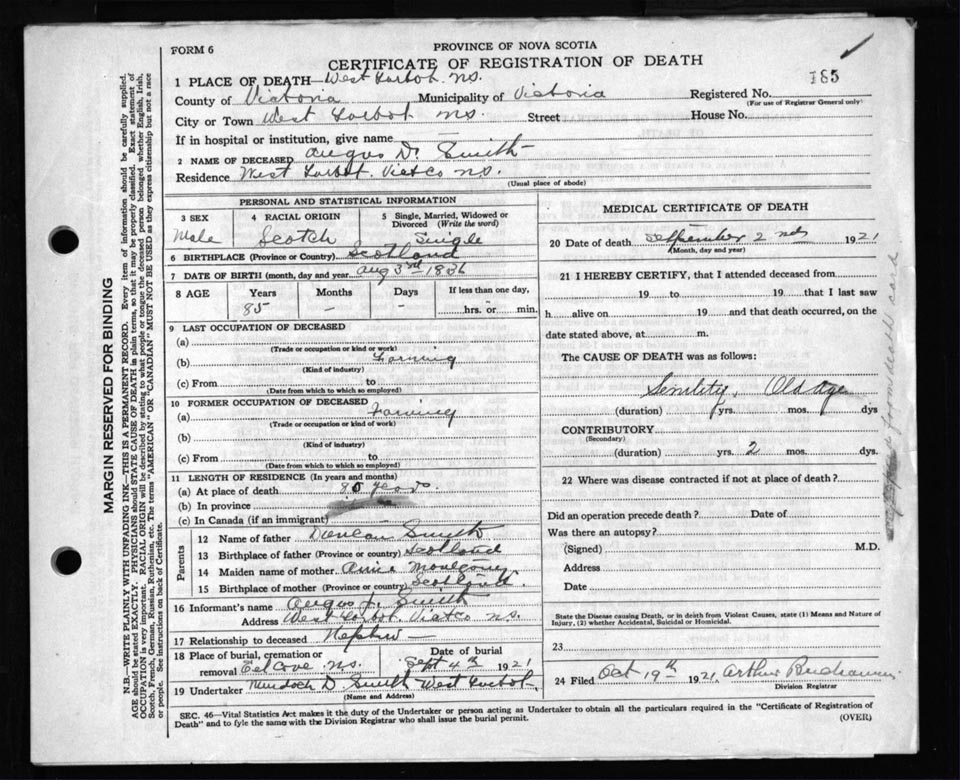 FORM 6
PROVINCE OF NOVA SCOTIA
CERTIFICATE OF REGISTRATION OF DEATH
785
1 PLACE OF DEATH—West Tarbot. N.S.
County of Victoria Municipality of Victoria Registered No.
(For use of Registrar General only)
City or Town West Tarbot N.S. Street House No.
If in hospital or institution, give name —
2 NAME OF DECEASED Angus D. Smith
Residence West Tarbot. Vict Co N.S.
(Usual place of abode)
PERSONAL AND STATISTICAL INFORMATION
3 SEX 4 RACIAL ORIGIN 5 Single, Married, Widowed or Divorced (Write the word)
Male Scotch Single
6 BIRTHPLACE (Province or Country) Scotland
7 DATE OF BIRTH (month, day and year) Aug 3rd 1836
8 AGE Years Months Days If less than one day,
85 — — hrs. or min.
9 LAST OCCUPATION OF DECEASED
(a)
(Trade or occupation or kind of work)
(b) Farming
(Kind of industry)
(c) From to
(Date from which to which so employed)
10 FORMER OCCUPATION OF DECEASED
(a) Farming
(Trade or occupation or kind of work)
(b)
(Kind of industry)
(c) From to
(Date from which to which so employed)
11 LENGTH OF RESIDENCE (In years and months)
(a) At place of death 80 years.
(b) In province
(c) In Canada (if an immigrant)
Parents
12 Name of father Duncan Smith
13 Birthplace of father (Province or country) Scotland
14 Maiden name of mother Annie
15 Birthplace of mother (Province or country) Scotland.
16 Informant's name Angus Smith
Address West Tarbot Vict Co N.S.
17 Relationship to deceased Nephew —
18 Place of burial, cremation or removal Eel Cove N.S. Date of burial Sept 4th 1921
19 Undertaker Murdoch D Smith West Tarbot.
(Name and Address)
MEDICAL CERTIFICATE OF DEATH
20 Date of death September 2nd 1921
(Month, day and year)
21 I HEREBY CERTIFY, that I attended deceased from
19 to 19 that I last saw
h alive on 19 and that death occurred, on the
date stated above, at m.
The CAUSE OF DEATH was as follows:
Senility, Old Age
(duration) yrs. mos. dys
CONTRIBUTORY
(Secondary)
(duration) yrs. 2 mos. dys.
22 Where was disease contracted if not at place of death?
Did an operation precede death? Date of
Was there an autopsy?
(Signed) M.D.
Address
Date
State the Disease causing Death, or in death from Violent Causes, state (1) Means and Nature of Injury, (2) whether Accidental, Suicidal or Homicidal.
23
24 Filed Oct 19th 1921 Arthur Buchanan
Division Registrar
from death card
SEC. 46—Vital Statistics Act makes it the duty of the Undertaker or person acting as Undertaker to obtain all the particulars required in the "Certificate of Registration of
Death" and to fyle the same with the Division Registrar who shall issue the burial permit.
(OVER)
MARGIN RESERVED FOR BINDING
N.B.—WRITE PLAINLY WITH UNFADING INK—THIS IS A PERMANENT RECORD. Every item of information should be carefully supplied.
AGE should be stated EXACTLY. PHYSICIANS should STATE CAUSE OF DEATH in plain terms, so that it may be properly classified. Exact statement of
OCCUPATION is very important. RACIAL ORIGIN will be described by stating to what people or tongue the deceased person belonged whether English, Irish,
Scotch, French, German, Russian, Ruthenian, etc. The terms "AMERICAN" or "CANADIAN" MUST NOT BE USED as they express citizenship but not a race
or people. See instructions on back of Certificate.